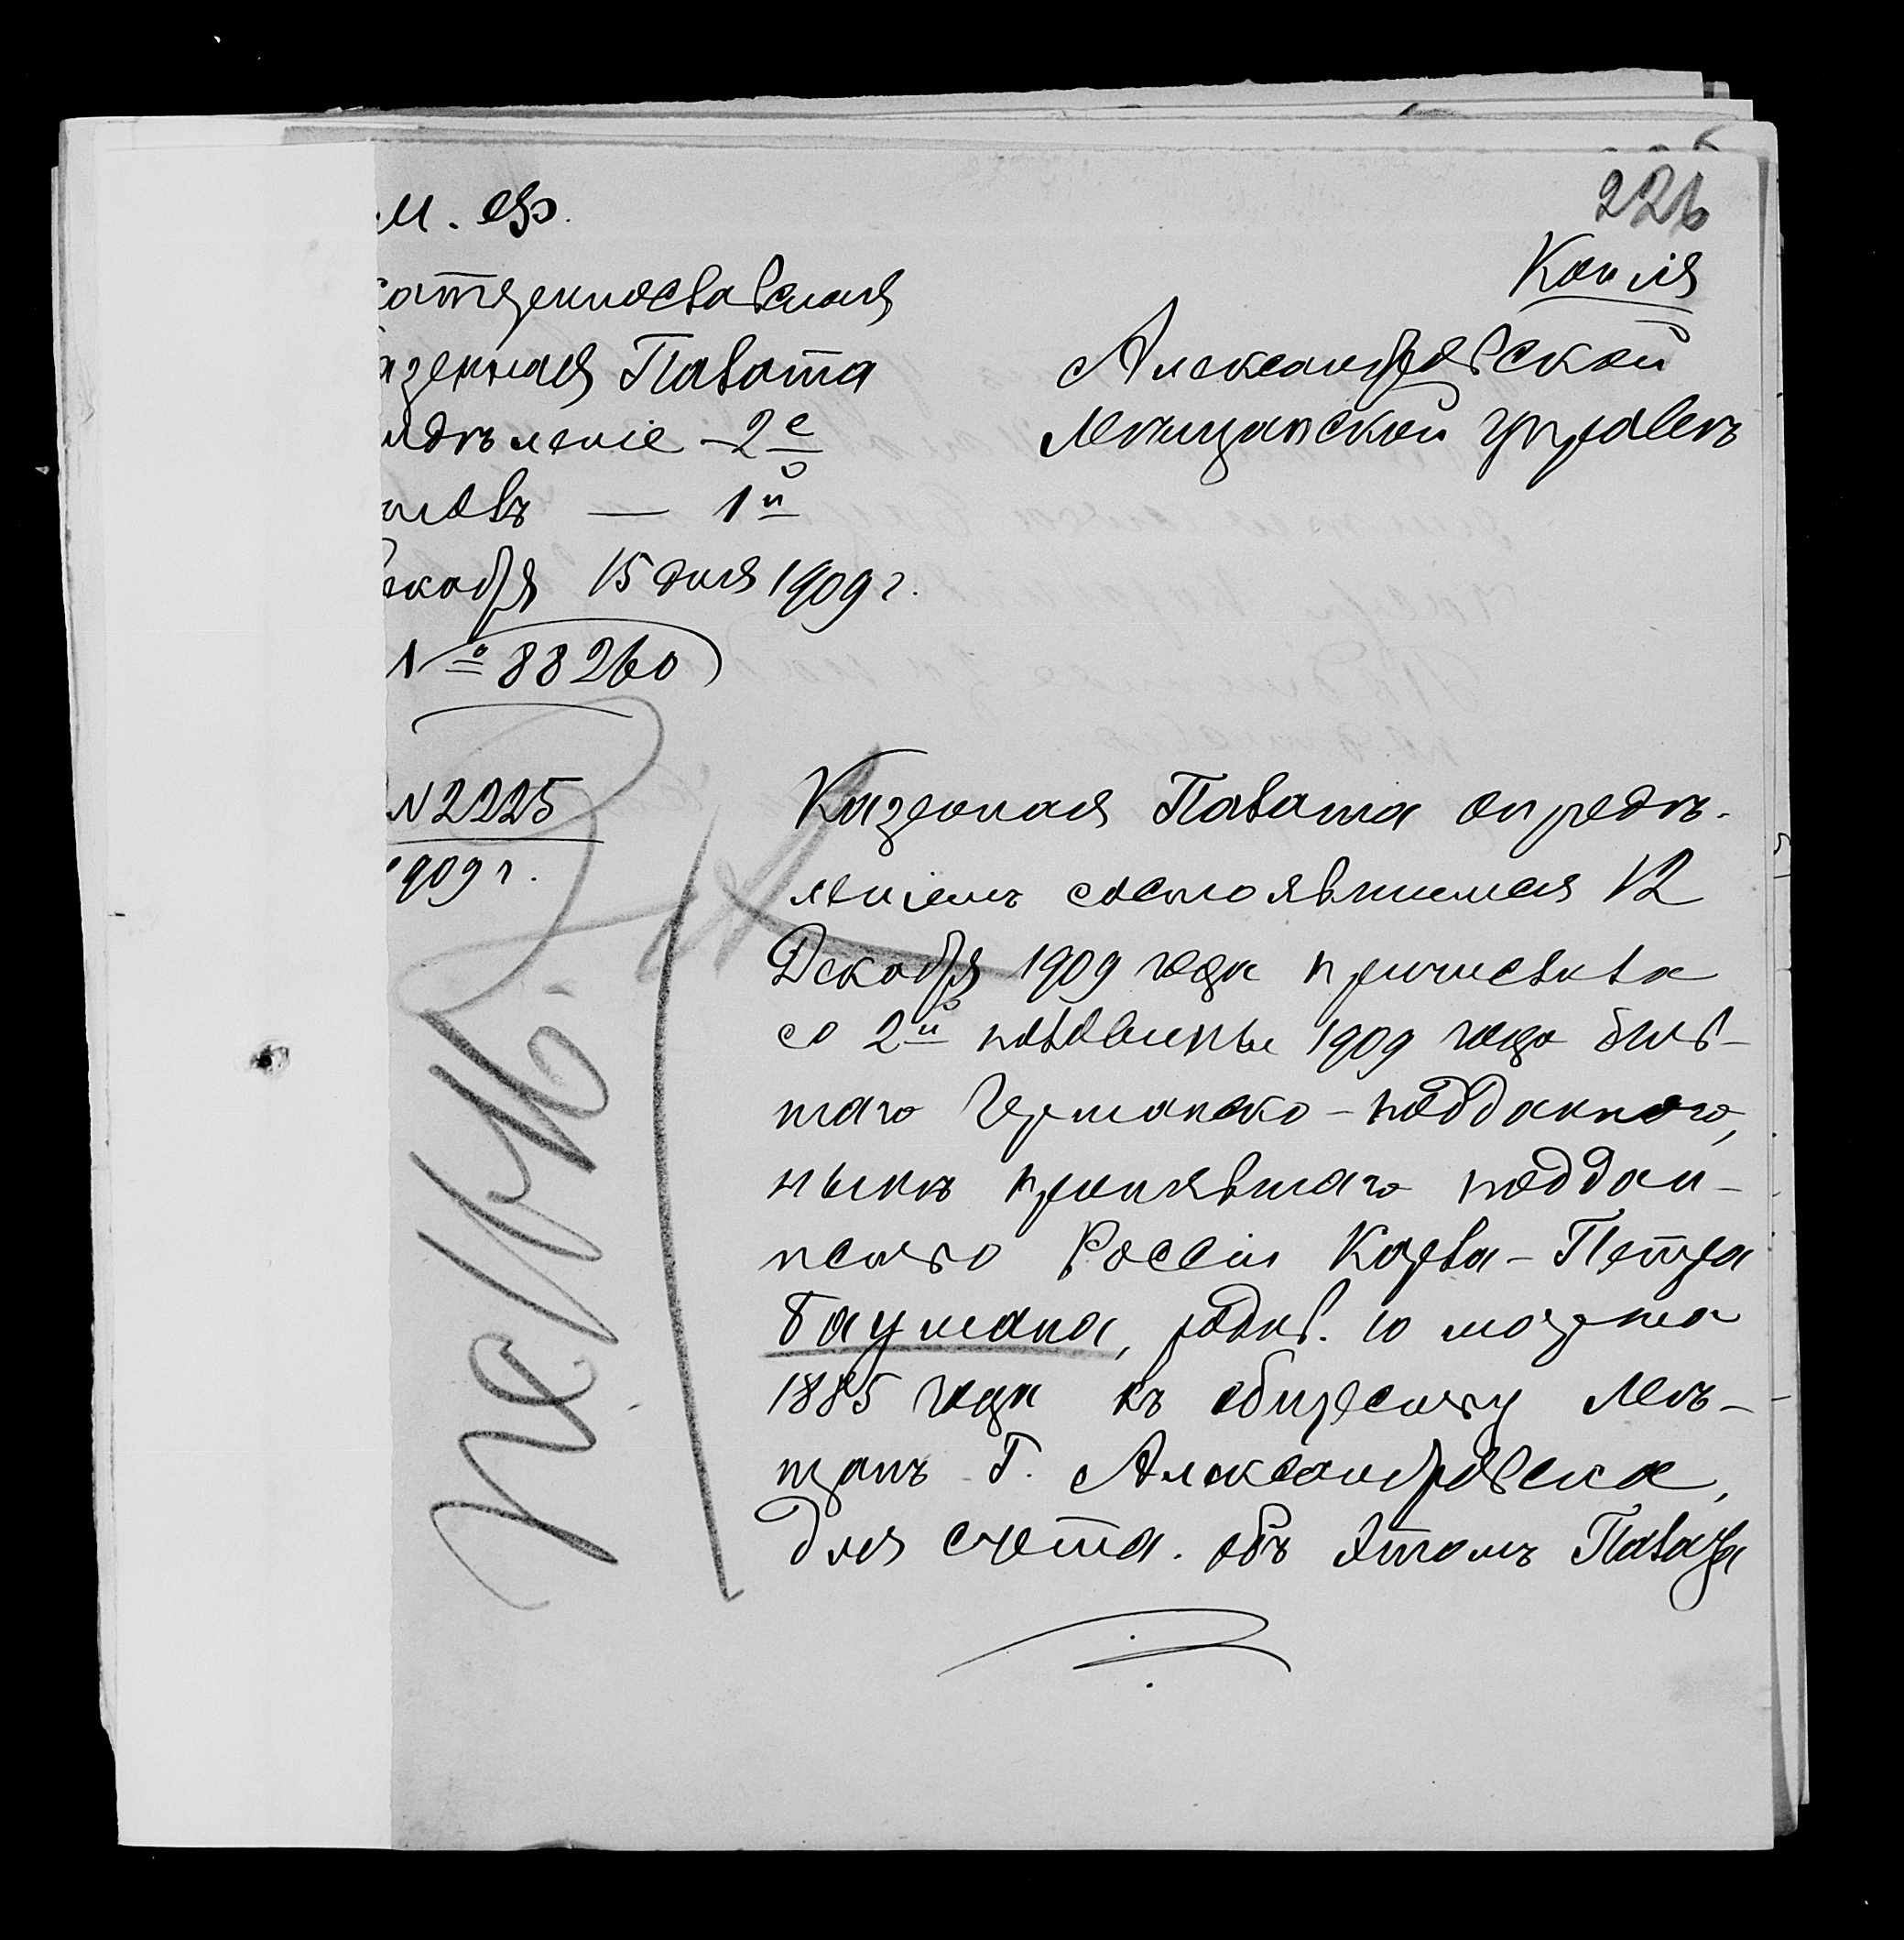 226
Копія
М. Ф.
катеринославская
азенная Палата
тдѣленіе 2е
толъ — 1й
екабря 15 дня 1909 г.
№ 88260
Александровской
Мѣщанской управѣ
№ 2225
1909 г.
Казенная Палата опредѣ-
леніемъ состоявшимся 12
Декабря 1909 года причислила
со 2й половины 1909 года быв-
шаго Германско-подданного,
нынѣ принявшаго поддан-
ство Россіи Карла-Петра
Баумана, родив. 10 марта
1885 года къ обществу Мѣ-
щанъ г. Александровска,
для счета. объ этомъ Палата